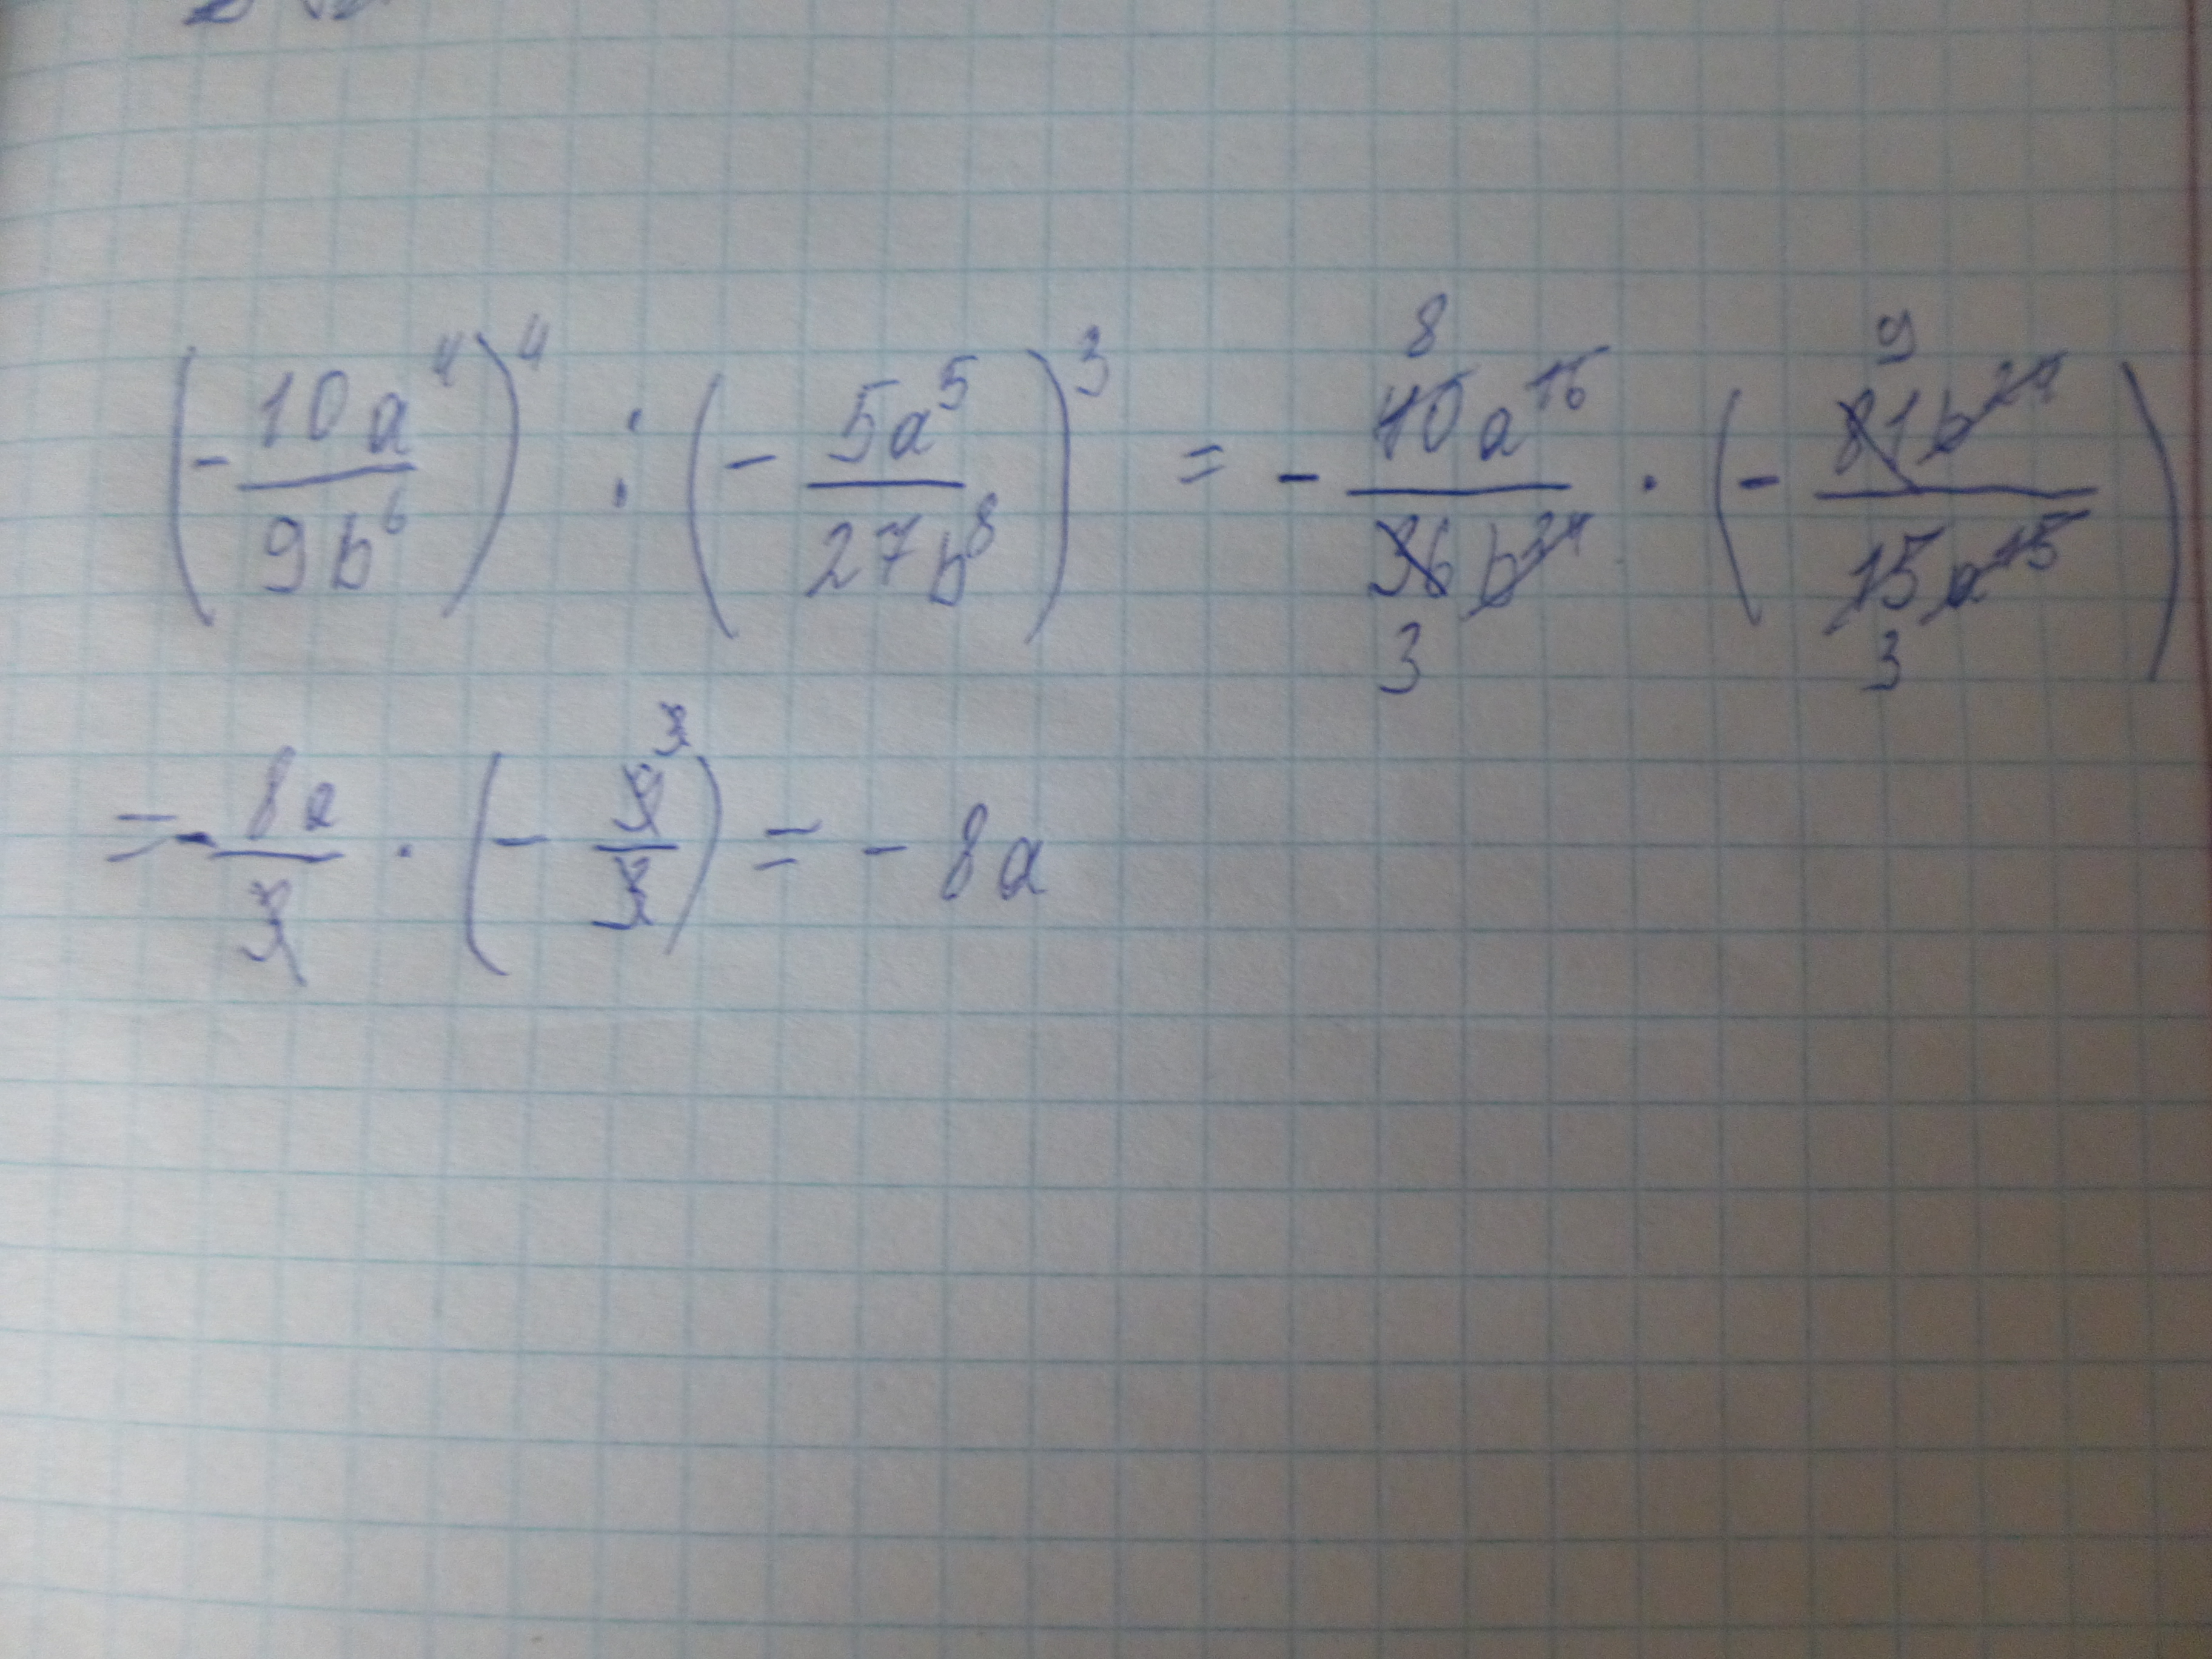 (- 10a⁴/9b⁶)⁴ : (- 5a⁵/27b⁸)³ = - 40a¹⁶/36b²⁴ · (- 81b²⁴/15a¹⁵)
8 9
3 3
= - 8a/3 · (- 9/3) = - 8a
3